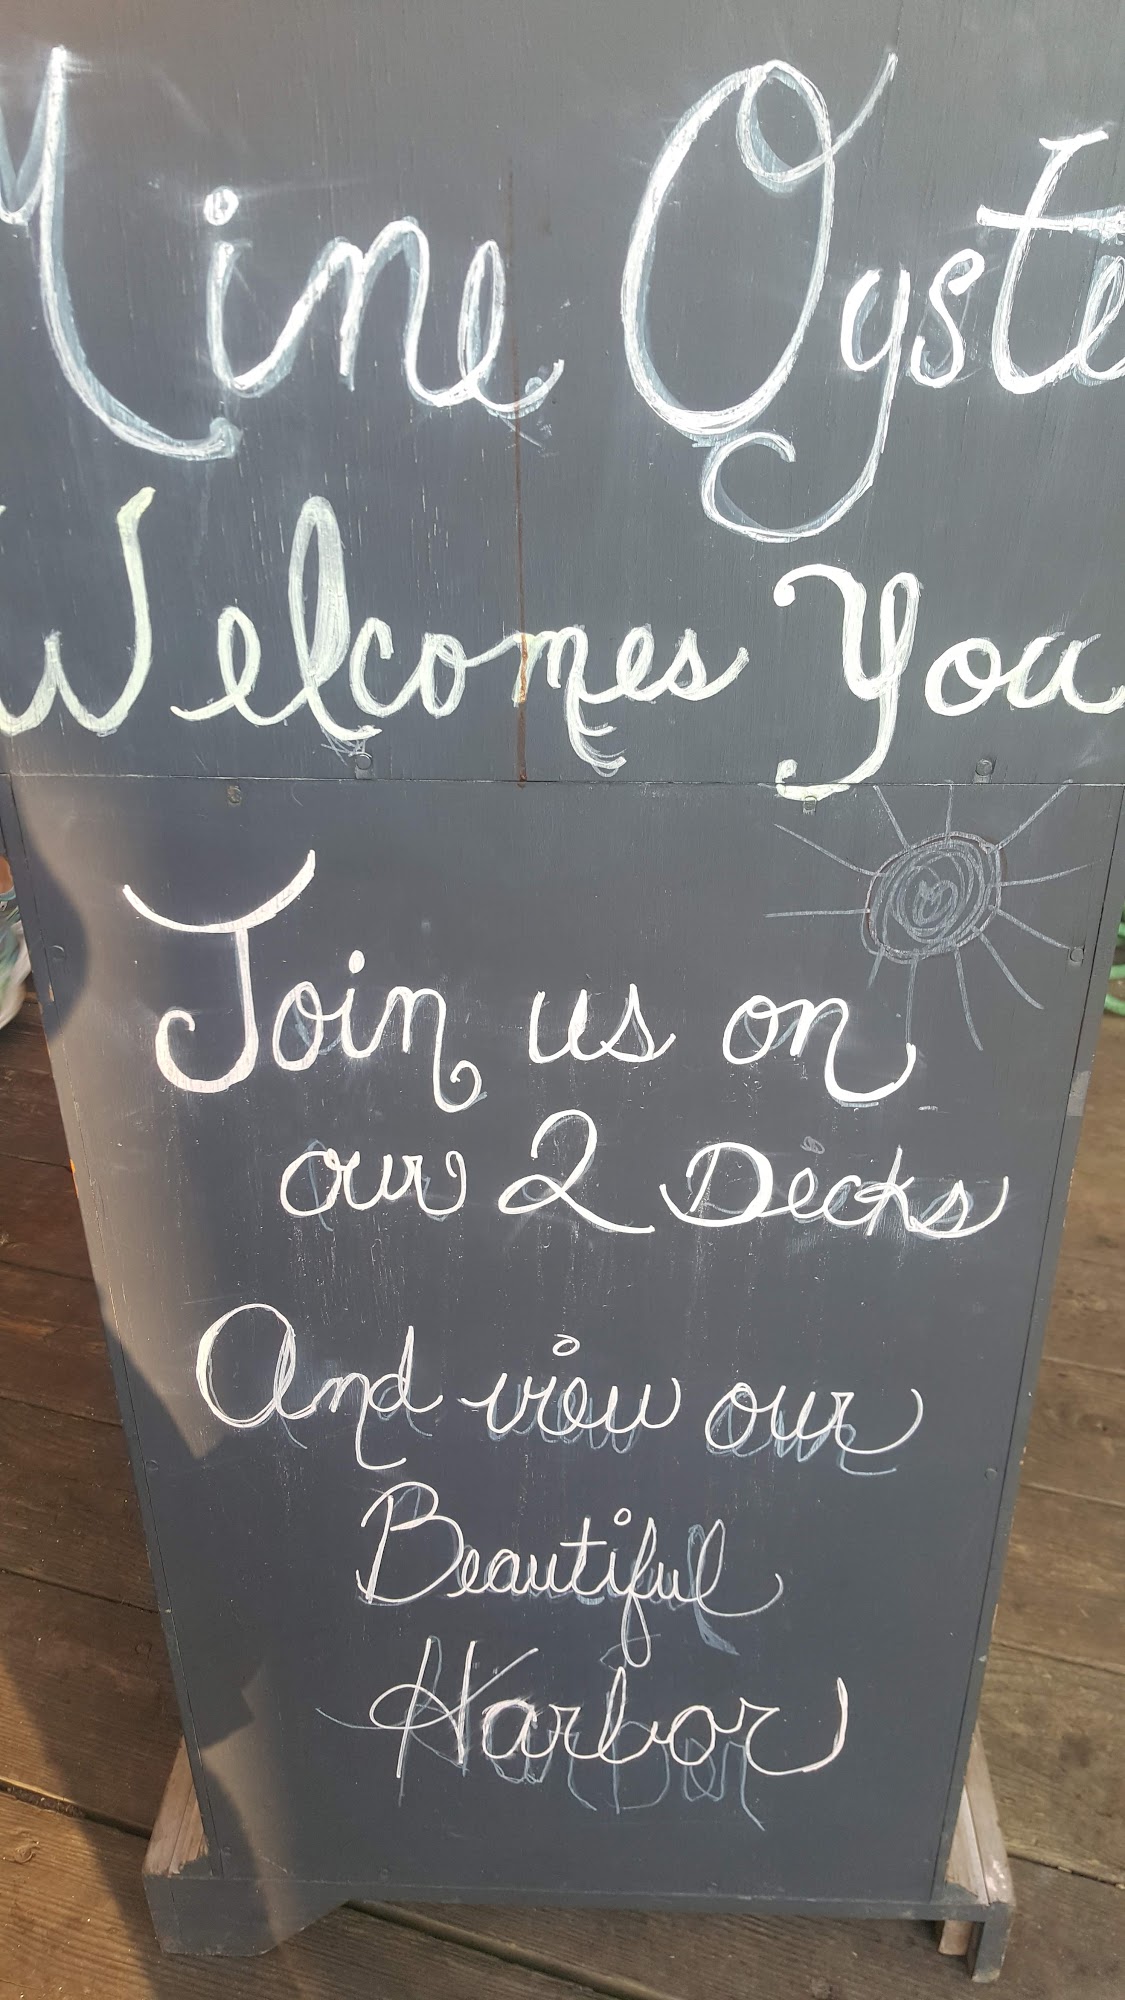 Mine Oyste
Welcomes You
Join us on
our 2 Decks
And view our
Beautiful
Harbor